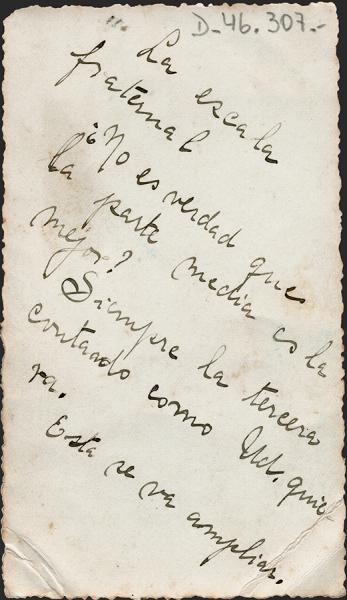 D-46.307.-
La escala
fraternal
¿No es verdad que
la parte media es la
mejor?
Siempre la tercera
contando como Ud. quie
ra.
Esta se va ampliar.